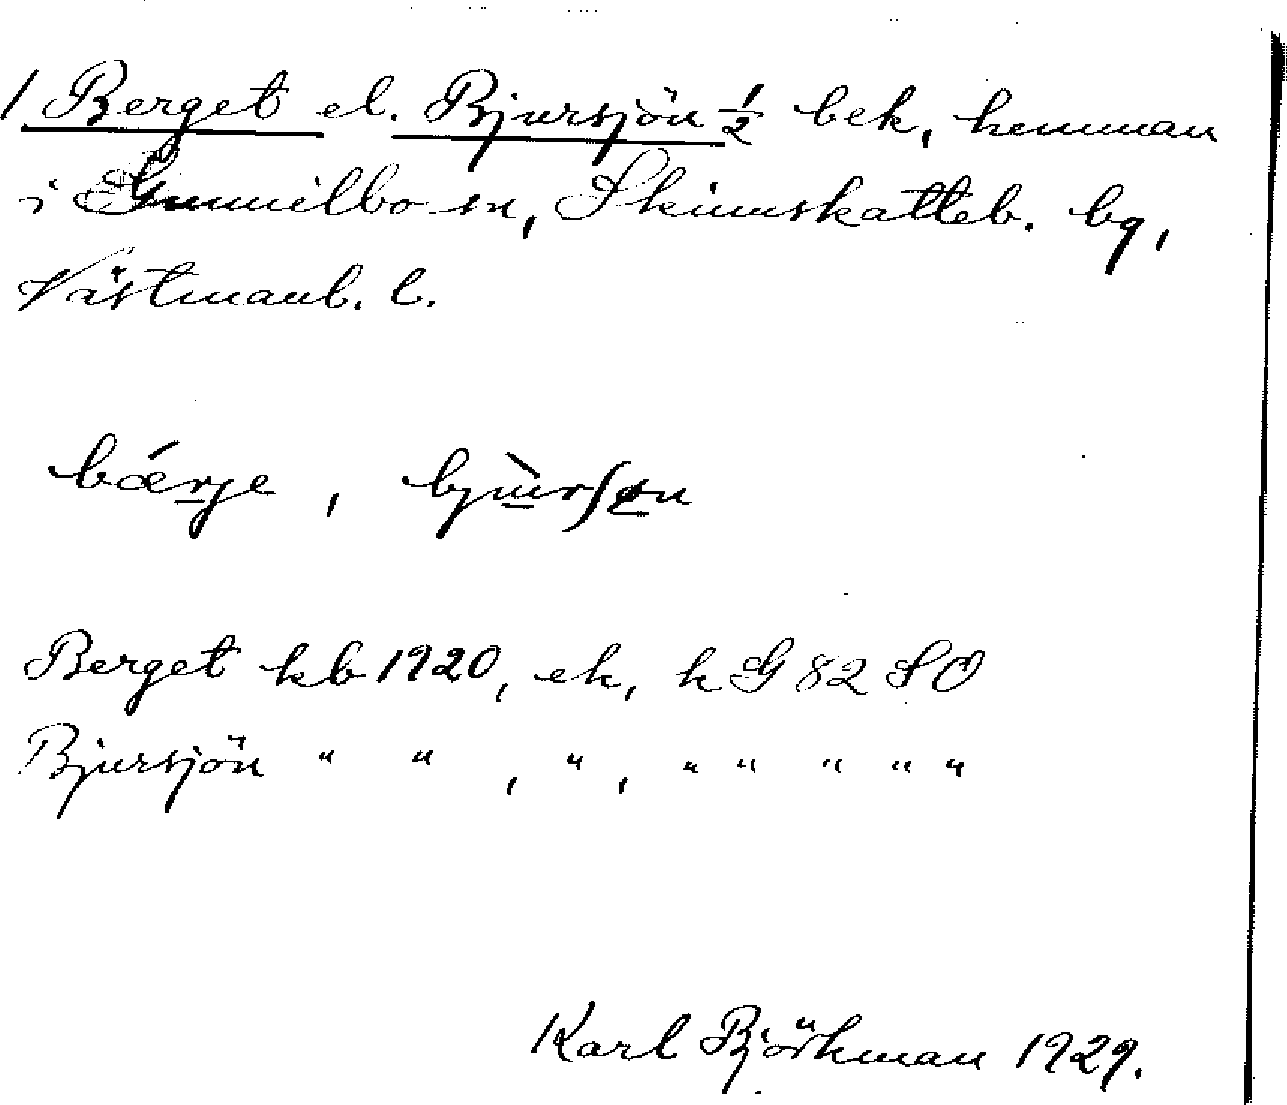 1 Berget el. Bjursjön ½ bek, hemman
i Gunnilbo sn, Skinnskatteb. bg,
Västmanl. l.
bǽrje, bjùrʃøn
Berget kb 1920, ek, h G 82 SO
Bjursjön " " , " , " " " " "
Karl Björkman 1929.